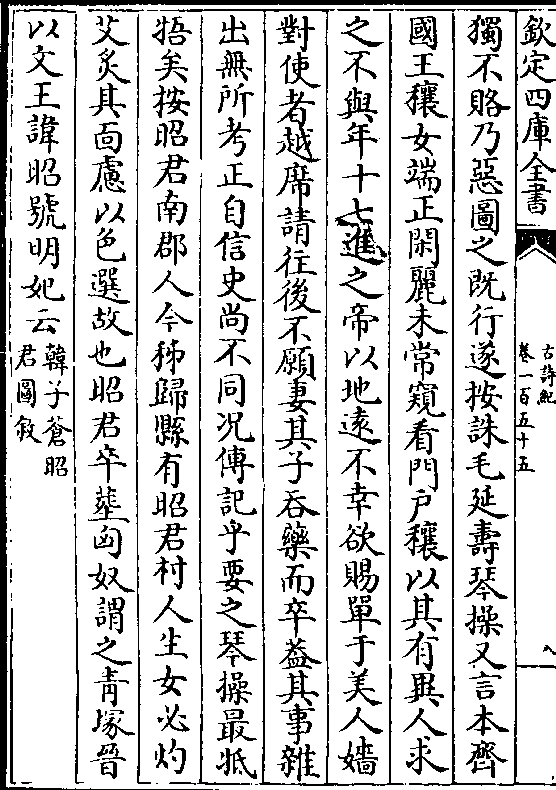 欽定四庫全書
古詩紀
卷一百五十五
八
獨不賂乃惡圖之既行遂按誅毛延壽琴操又言本齊
國王穰女端正閑麗未常窺看門户穰以其有異人求
之不與年十七進之帝以地遠不幸欲賜單于美人嬙
對使者越席請往後不願妻其子吞藥而卒葢其事雜
出無所考正自信史尚不同况傳記乎要之琴操最牴
牾矣按昭君南郡人今秭歸縣有昭君村人生女必灼
艾炙其面慮以色選故也昭君卒塟匈奴謂之青塚晉
以文王諱昭號明妃云韓子蒼昭君圖敘